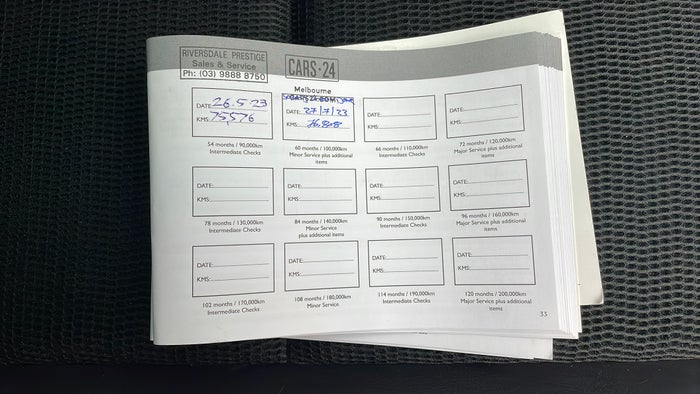 RIVERSDALE PRESTIGE
Sales & Service
Ph: (03) 9888 8750
CARS·24
Melbourne
DATE: 26.5.23
KMS: 75,576
DATE: 27/7/23
KMS:
DATE:
KMS:
DATE:
KMS:
54 months / 90,000km
Intermediate Checks
60 months / 100,000km
Minor Service plus additional
items
66 months / 110,000km
Intermediate Checks
72 months / 120,000km
Major Service plus additional
items
DATE:
KMS:
DATE:
KMS:
DATE:
KMS:
DATE:
KMS:
78 months / 130,000km
Intermediate Checks
84 months / 140,000km
Minor Service
plus additional items
90 months / 150,000km
Intermediate Checks
96 months / 160,000km
Major Service plus additional
items
DATE:
KMS:
DATE:
KMS:
DATE:
KMS:
DATE:
KMS:
102 months / 170,000km
Intermediate Checks
108 months / 180,000km
Minor Service
114 months / 190,000km
Intermediate Checks
120 months / 200,000km
Major Service plus additional
items
33